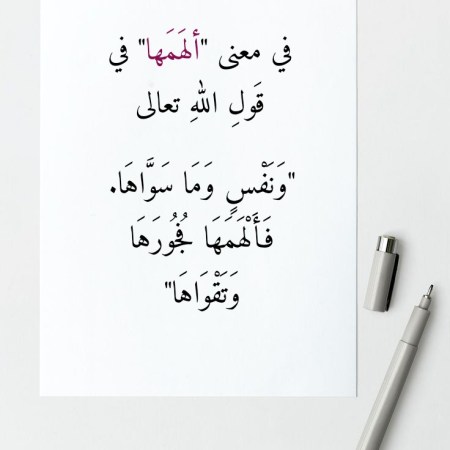 في معنى "ألهَمَها" في
قَولِ اللهِ تعالى
"وَنَفْسٍ وَمَا سَوَّاهَا.
فَأَلْهَمَهَا فُجُورَهَا
وَتَقْوَاهَا"